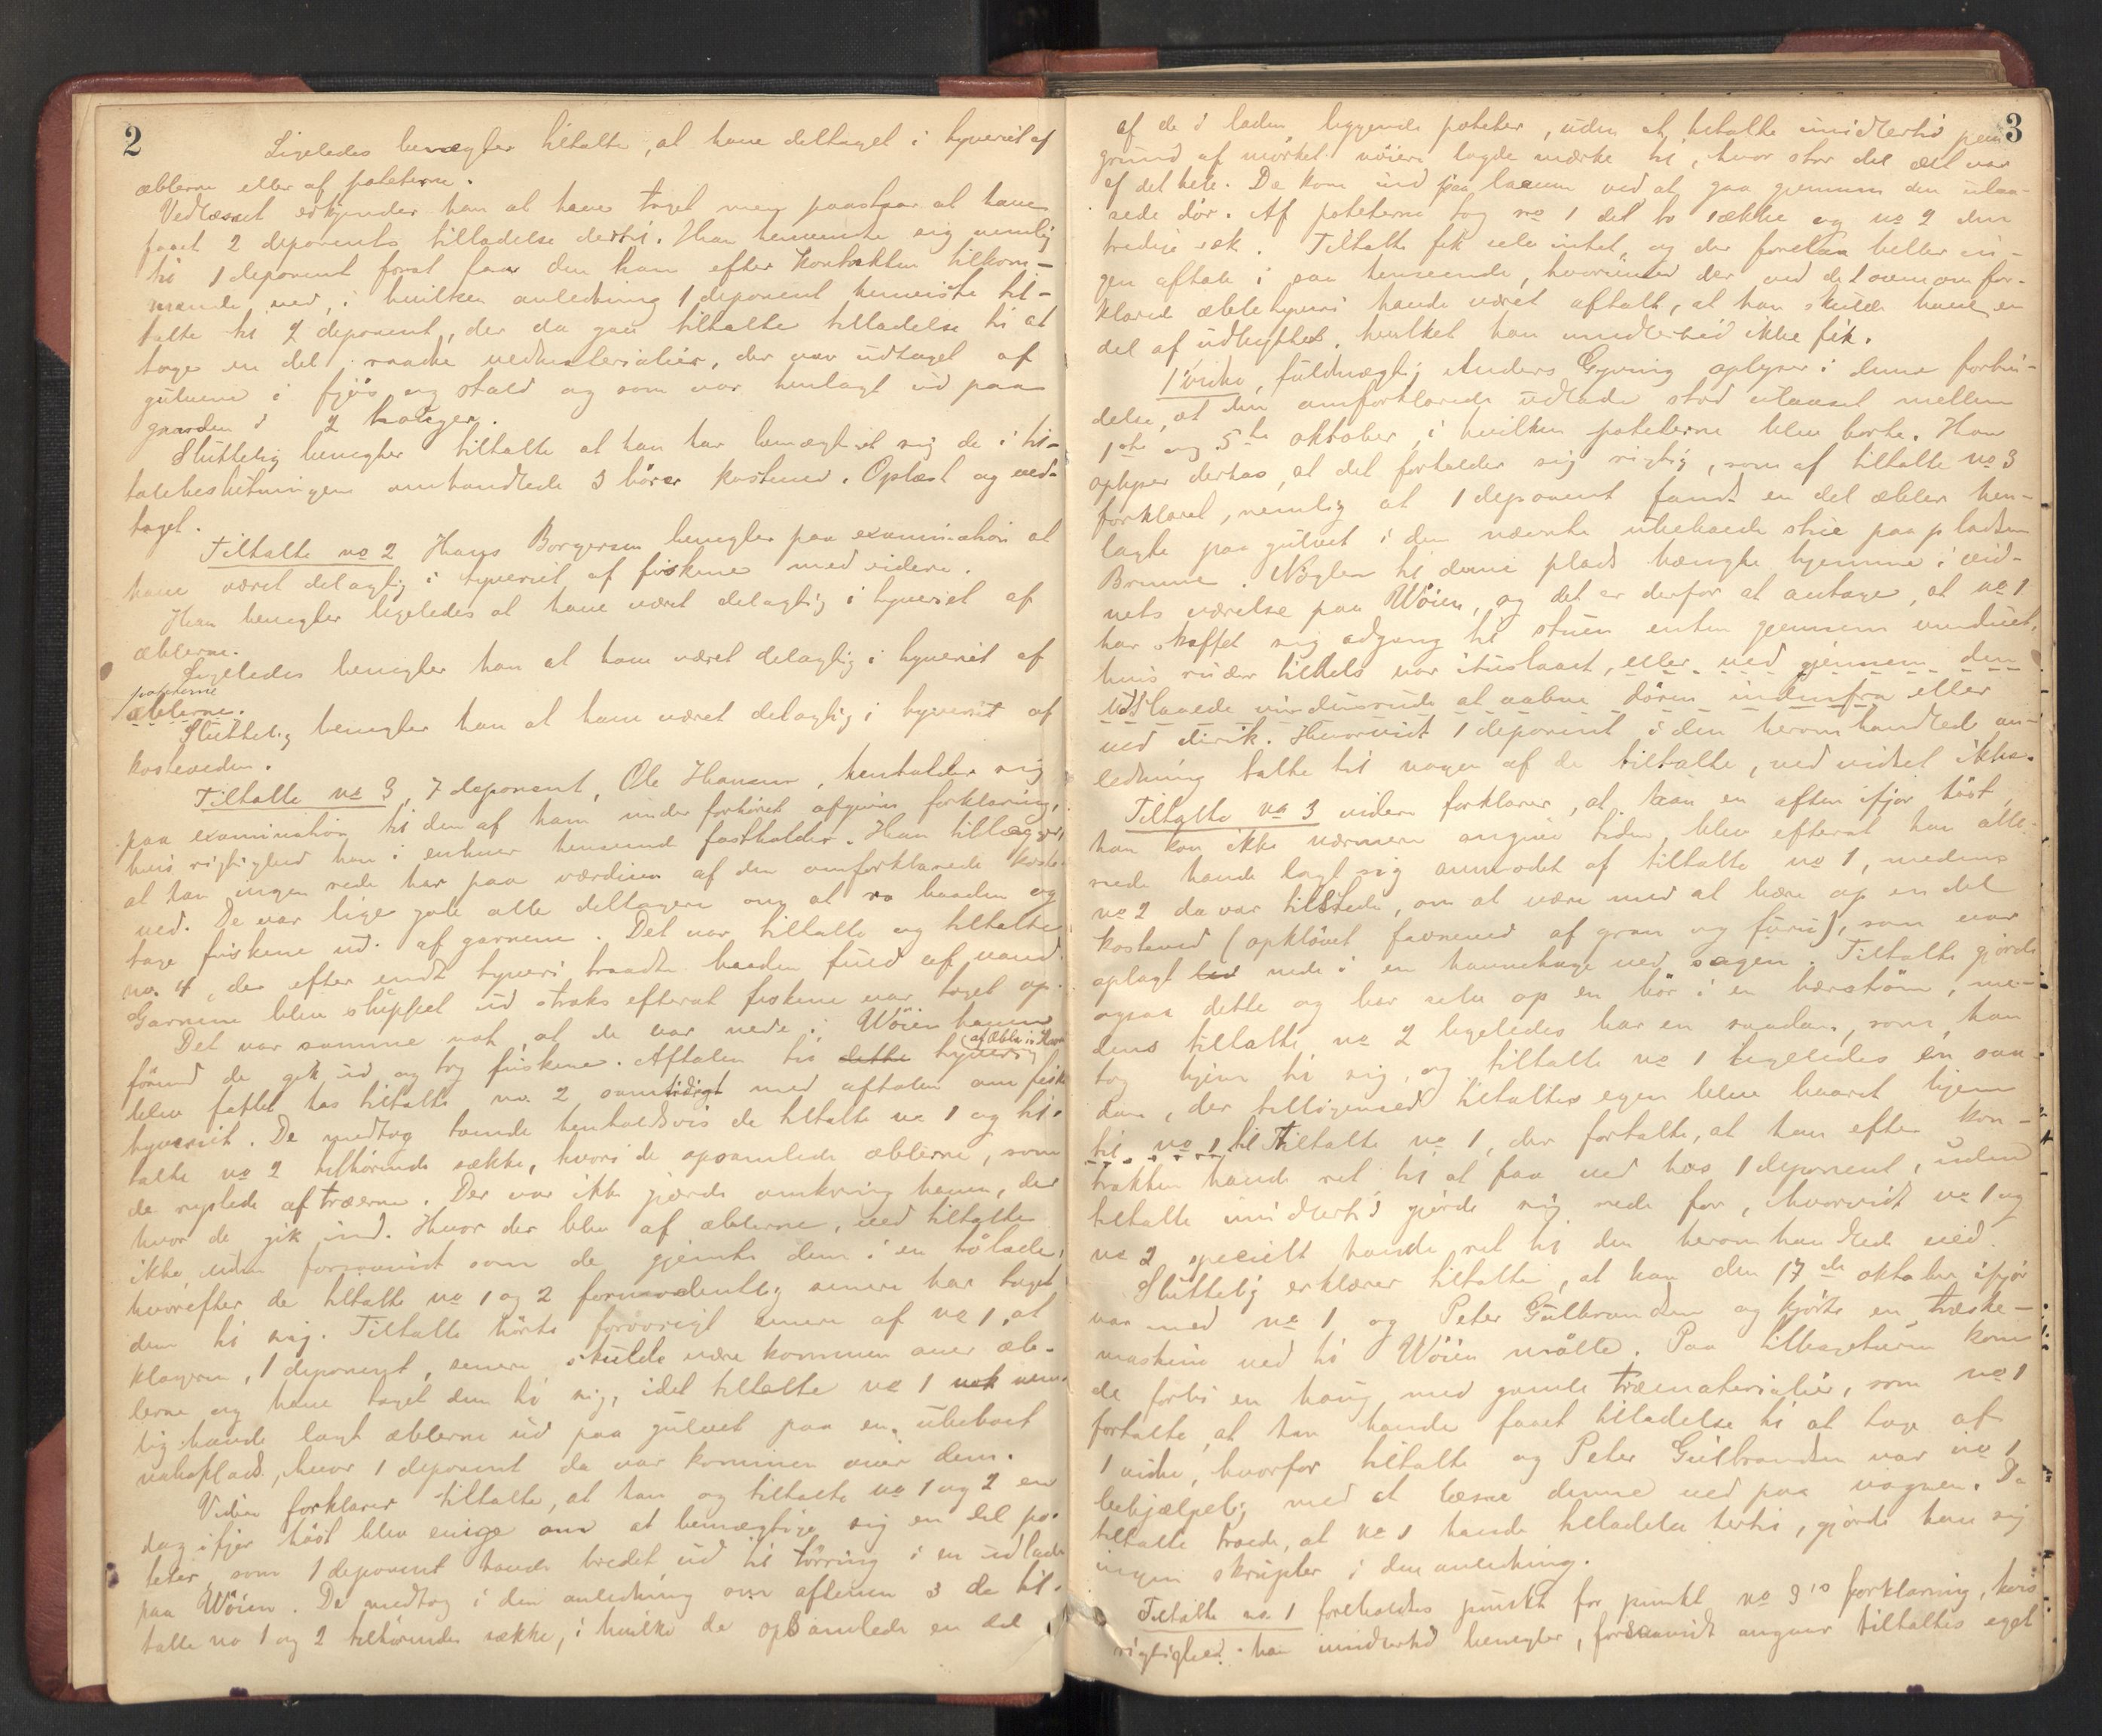 2
Ligeledes benægter tiltalte, at have deltaget i tyveriet af
æblerne eller af poteterne.
Vedlæsset erkjender han at have taget men paastaar at have
faaet 2 deponents tilladelse dertil. Han henvendte sig nemlig
til 1 deponent forat faa den ham efter kontrakten tilkom-
mende ved, i hvilken anledning 1 deponent henviste til-
talte til 2 deponent, der da gav tiltalte tilladelse til at
tage en del raadne vedmaterialier, der var udtaget af
gulvene i fjös og stald og som var henlagt ud paa
gaarden i 2 hauger.
Sluttelig benegter tiltalte at han har bemægtiget sig de i til-
talebeslutningen omhandlede 3 börer kosteved. Oplæst og ved-
taget.
Tiltalte no 2 Hans Borgersen benegter paa examination at
have været delagtig i tyveriet af fiskene med videre.
Han benegter ligeledes at have været delagtig i tyveriet af
æblerne.
Ligeledes benegter han at have været delagtig i tyveriet af
poteterne
æblerne.
Sluttelig benegter han at have været delagtig i tyveriet af
kosteveden.
Tiltalte no 3, 7 deponent, Ole Hansen, henholder sig
paa examination til den af ham under forhöret afgivne forklaring,
hvis rigtighed han i enhver henseende fastholder. Han tillægger,
at han ingen rede har paa værdien af den omforklarede koste-
ved. De var lige gode alle deltagere om at ro baaden og
tage fiskene ud af garnene. Det var tiltalte og tiltalte
no. 4, der efter endt tyveri traadte baaden fuld af vand.
Garnene blev sluppet ud straks efterat fiskene var taget op.
Det var samme nat, at de var nede i Wöien haven
förend de gik ud og tog fiskene. Aftalen til dette tyveri (af æbler i haven)
blev fattet hos tiltalte no. 2 samtidigt med aftalen om fiske
tyveriet. De medtog tvende henholdsvis de tiltalte no 1 og til-
talte no 2 tilhörende sække, hvori de opsamlede æblerne, som
de rystede af træerne. Der var ikke gjærde omkring haven, der
hvor de gik ind. Hvor der blev af æblerne, ved tiltalte
ikke, uden forsaavidt som de gjemte dem i en hölade,
hvorefter de tiltalte no 1 og 2 formodentlig senere har taget
dem til sig. Tiltalte hörte forövrigt senere af no 1, at
klageren, 1 deponent, senere skulde være kommen over æb-
lerne og have taget dem til sig, idet tiltalte no 1 nok nem-
lig havde lagt æblerne ud paa gulvet paa en ubeboet
naboplads, hvor 1 deponent da var kommen over dem.
Videre forklarer tiltalte, at han og tiltalte no 1 og 2 en
dag ifjor höst blev enige om at bemægtige sig en del po-
teter, som 1 deponent havde bredet ud til törring i en udlade
paa Wöien. De medtog i den anledning om aftenen 3 de til-
talte no 1 og 2 tilhörende sække, i hvilke de opsamlede en del
3
af de i laden liggende poteter, uden at tiltalte imidlertid paa
grund af mörket nöiere lagde mærke til, hvor stor del det var
af det hele. De kom ind paa laaven ved at gaa gjennem den ulaa-
sede dör. Af poteterne tog no 1 det to sække og no 2 den
tredie sæk. Tiltalte fik selv intet, og der forelaa heller in-
gen aftale i saa henseende, hvorimod der ved det ovenom for-
klarede æbletyveri havde været aftalt, at han skulde have en
del af udbyttet, hvilket han imidlertid ikke fik.
1 vidne, fuldmægtig Anders Gyving oplyser i denne forbin-
delse, at den omforklarede udlade stod ulaaset mellem
1ste og 5te oktober, i hvilken poteterne blev borte. Han
oplyser derhos, at det forholder sig rigtig, som af tiltalte no 3
forklaret, nemlig at 1 deponent fandt en del æbler hen-
lagte paa gulvet i den nævnte ubeboede stue paa pladsen
Brenne. Nöglen til denne plads hængte hjemme i vid-
nets værelse paa Wöien, og det er derfor at antage, at no 1
har skaffet sig adgang til stuen enten gjennem vinduet,
hvis ruder tildels var istuslaaet, eller ved gjennem den
udslaaede vinduesrude at aabne dören indenfra eller
ved dirik. Hvorvidt 1 deponent i den herom handlede an-
ledning talte til nogen af de tiltalte, ved vidnet ikke.
Tiltalte no 3 videre forklarer, at han en aften ifjor höst,
han kan ikke nærmere angive tiden, blev efterat han alle-
rede havde lagt sig anmodet af tiltalte no 1, medens
no 2 da var tilstede, om at være med at bære op en del
kosteved (opklövet favneved af gran og furu), som var
oplagt ved nede i en havnehage ved sagen. Tiltalte gjorde
ogsaa dette og bar selv op en bör i en bærström, me-
dens tiltalte no 2 ligeledes bar en saadan, som han
tog hjem til sig, og tiltalte no 1 ligeledes én saa-
dan, der tilligemed tiltaltes egen blev baaret hjem
til no 1 til Tiltalte no 1, der fortalte, at han efter kon-
trakten havde ret til at faa ved hos 1 deponent, uden
tiltalte imidlertid gjorde sig rede for, hvorvidt no 1 og
no 2 specielt havde ret til den herom handlede ved.
Sluttelig erklærer tiltalte, at han den 17de oktober ifjor
var med no 1 og Peter Gulbrandsen og kjörte en træske-
maskine ned til Wöien mölle. Paa tilbageturen kom
de forbi en haug med gamle træmaterialier, som no 1
fortalte, at han havde faaet tilladelse til at tage af
1 vidne, hvorfor tiltalte og Peter Gulbrandsen var no 1
behjælpelig med at læsse denne ved paa vognen. Da
tiltalte troede, at no 1 havde tilladelse hertil, gjorde han sig
ingen skrupler i den anledning.
Tiltalte no 1 foreholdes punkt for punkt no 3's forklaring, hvis
rigtighed han imidlertid benegter, forsaavidt angaar tiltaltes eget